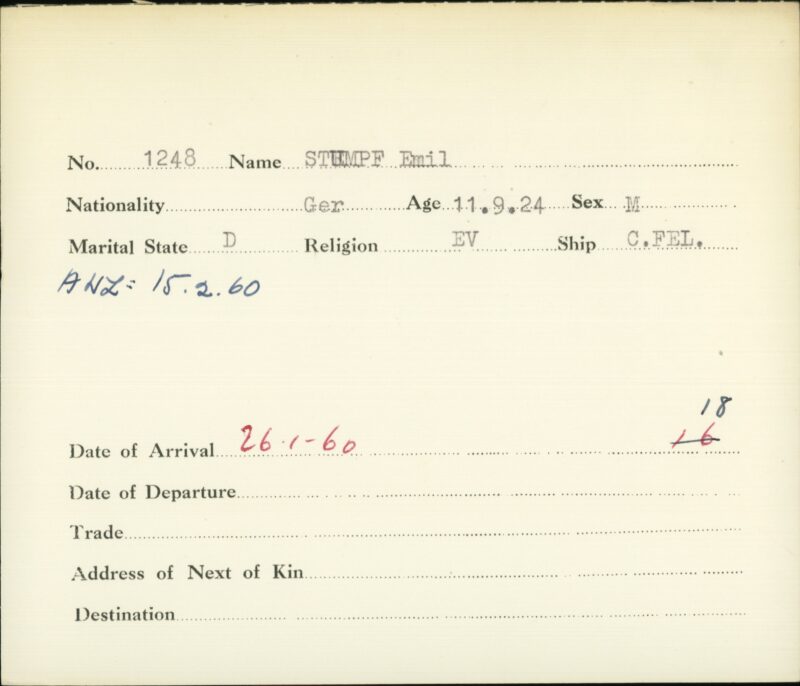 No. 1248 Name STUMPF Emil
Nationality Ger Age 11.9.24 Sex M
Marital State D Religion EV Ship C.FEL.
ANZ: 15.2.60
18
Date of Arrival 26.1-60 16
Date of Departure
Trade
Address of Next of Kin
Destination